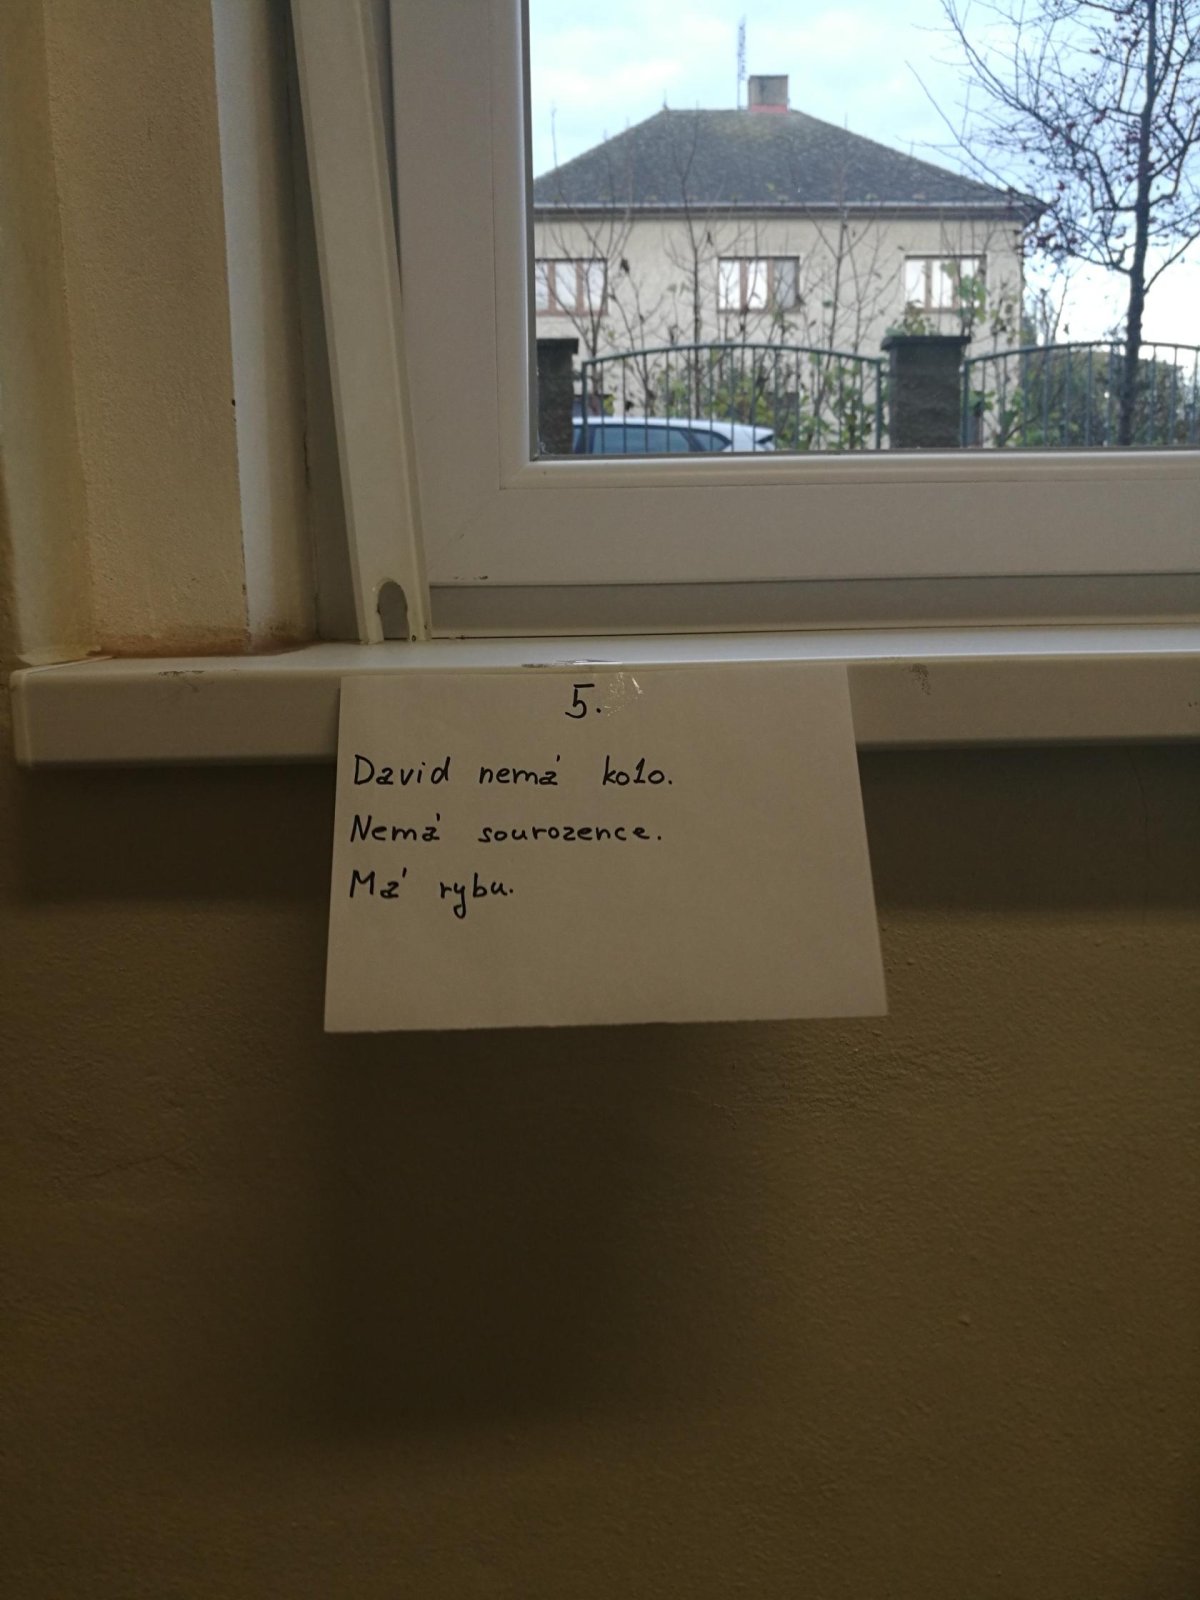 5.
David nemá kolo.
Nemá sourozence.
Má rybu.